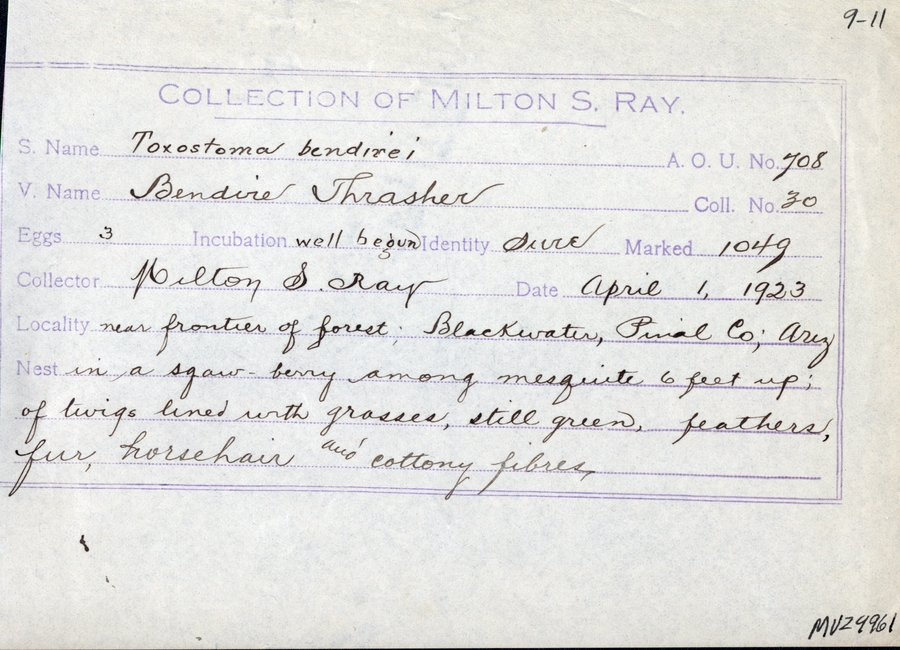 9-11
COLLECTION OF MILTON S. RAY.
S. Name Toxostoma bendirei A. O. U. No. 708
V. Name Bendire Thrasher Coll. No. 30
Eggs 3 Incubation well begun Identity Sure Marked 1049
Collector Milton S. Ray Date April 1, 1923
Locality near frontier of forest; Blackwater, Pinal Co; Ariz
Nest in a sqaw-berry among mesquite 6 feet up;
of twigs lined with grasses, still green, feathers,
fur, horsehair and cottony fibres,
MVZ9961